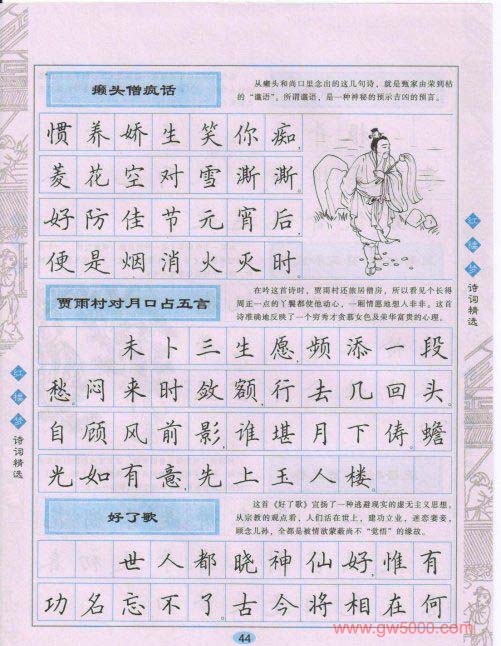 癞头僧疯话
从癞头和尚口里念出的这几句诗，就是甄家由荣到枯
的“谶语”。所谓谶语，是一种神秘的预示吉凶的预言。
惯养娇生笑你痴，
菱花空对雪澌澌。
好防佳节元宵后，
便是烟消火灭时
贾雨村对月口占五言
在吟这首诗时，贾雨村还旅居僧房，所以看见个长得
周正一点的丫鬟都使他动心，一厢情愿地想入非非。这首
诗准确地反映了一个穷秀才贪慕女色及荣华富贵的心理。
未卜三生愿，频添一段
愁。闷来时敛额，行去几回头。
自顾风前影，谁堪月下俦。蟾
光如有意，先上玉人楼。
好了歌
这首《好了歌》宣扬了一种逃避现实的虚无主义思想。
从宗教的观点看，人们活在世上，建功立业，迷恋妻妾，
顾念儿孙，全都是被情欲蒙蔽尚不“觉悟”的缘故。
世人都晓神仙好，惟有
功名忘不了。古今将相在何
红楼梦
诗词精选
红楼梦
诗词精选
44
www.gw5000.com